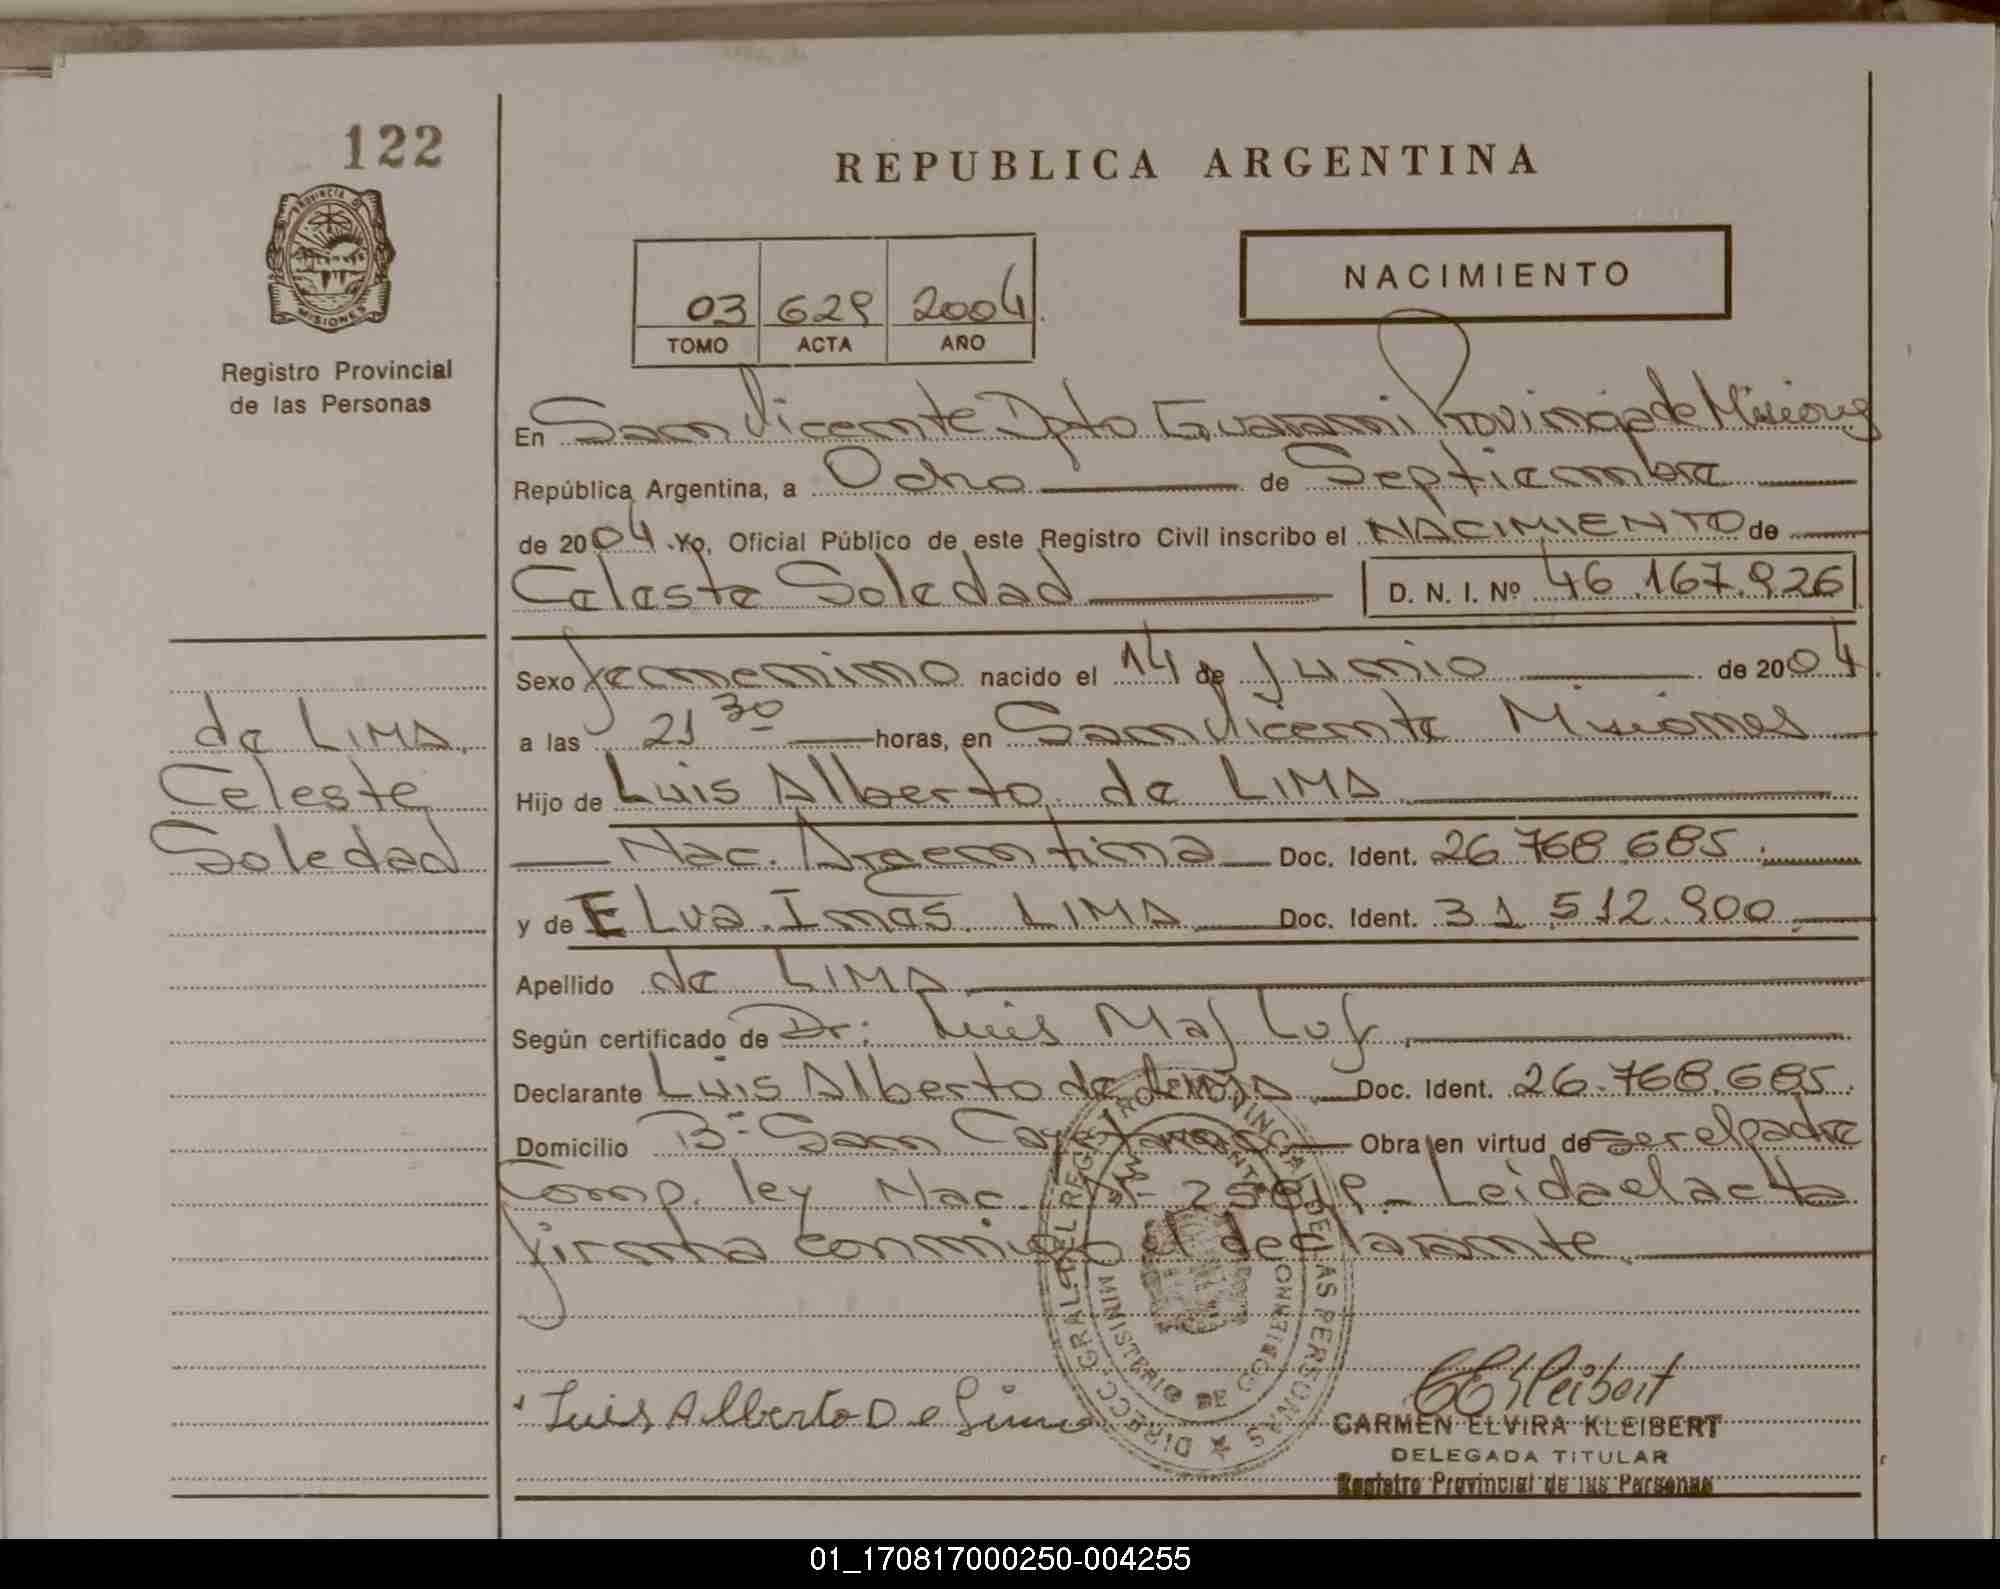 122
PROVINCIA DE
MISIONES
Registro Provincial
de las Personas
REPUBLICA ARGENTINA
03 629 2004
TOMO ACTA AÑO
NACIMIENTO
En San Vicente Dpto Guarani Provincia de Misiones
República Argentina, a Ocho de Septiembre
de 2004. Yo, Oficial Público de este Registro Civil inscribo el NACIMIENTO de
Celeste Soledad D. N. I. Nº 46.167.926
Sexo femenino nacido el 14 de Junio de 2004
a las 21 30 horas, en San Vicente Misiones
Hijo de Luis Alberto de LIMA
Nac. Argentina Doc. Ident. 26.768.685
y de ELva Ines LIMA Doc. Ident. 31.512.900
Apellido de LIMA
Según certificado de Dr: Luis
Declarante Luis Alberto de LIMA Doc. Ident. 26.768.685
Domicilio Bº San Cayetano Obra en virtud de ser el padre
Comp. ley Nac. Leida el acta
firma conmigo el declarante
de LIMA
Celeste
Soledad
DIRECC. GRAL. DEL REGISTRO PROVINCIAL DE LAS PERSONAS
MINISTERIO DE GOBIERNO
Luis Alberto De Lima
CEKleibert
CARMEN ELVIRA KLEIBERT
DELEGADA TITULAR
Registro Provincial de las Personas
01_170817000250-004255